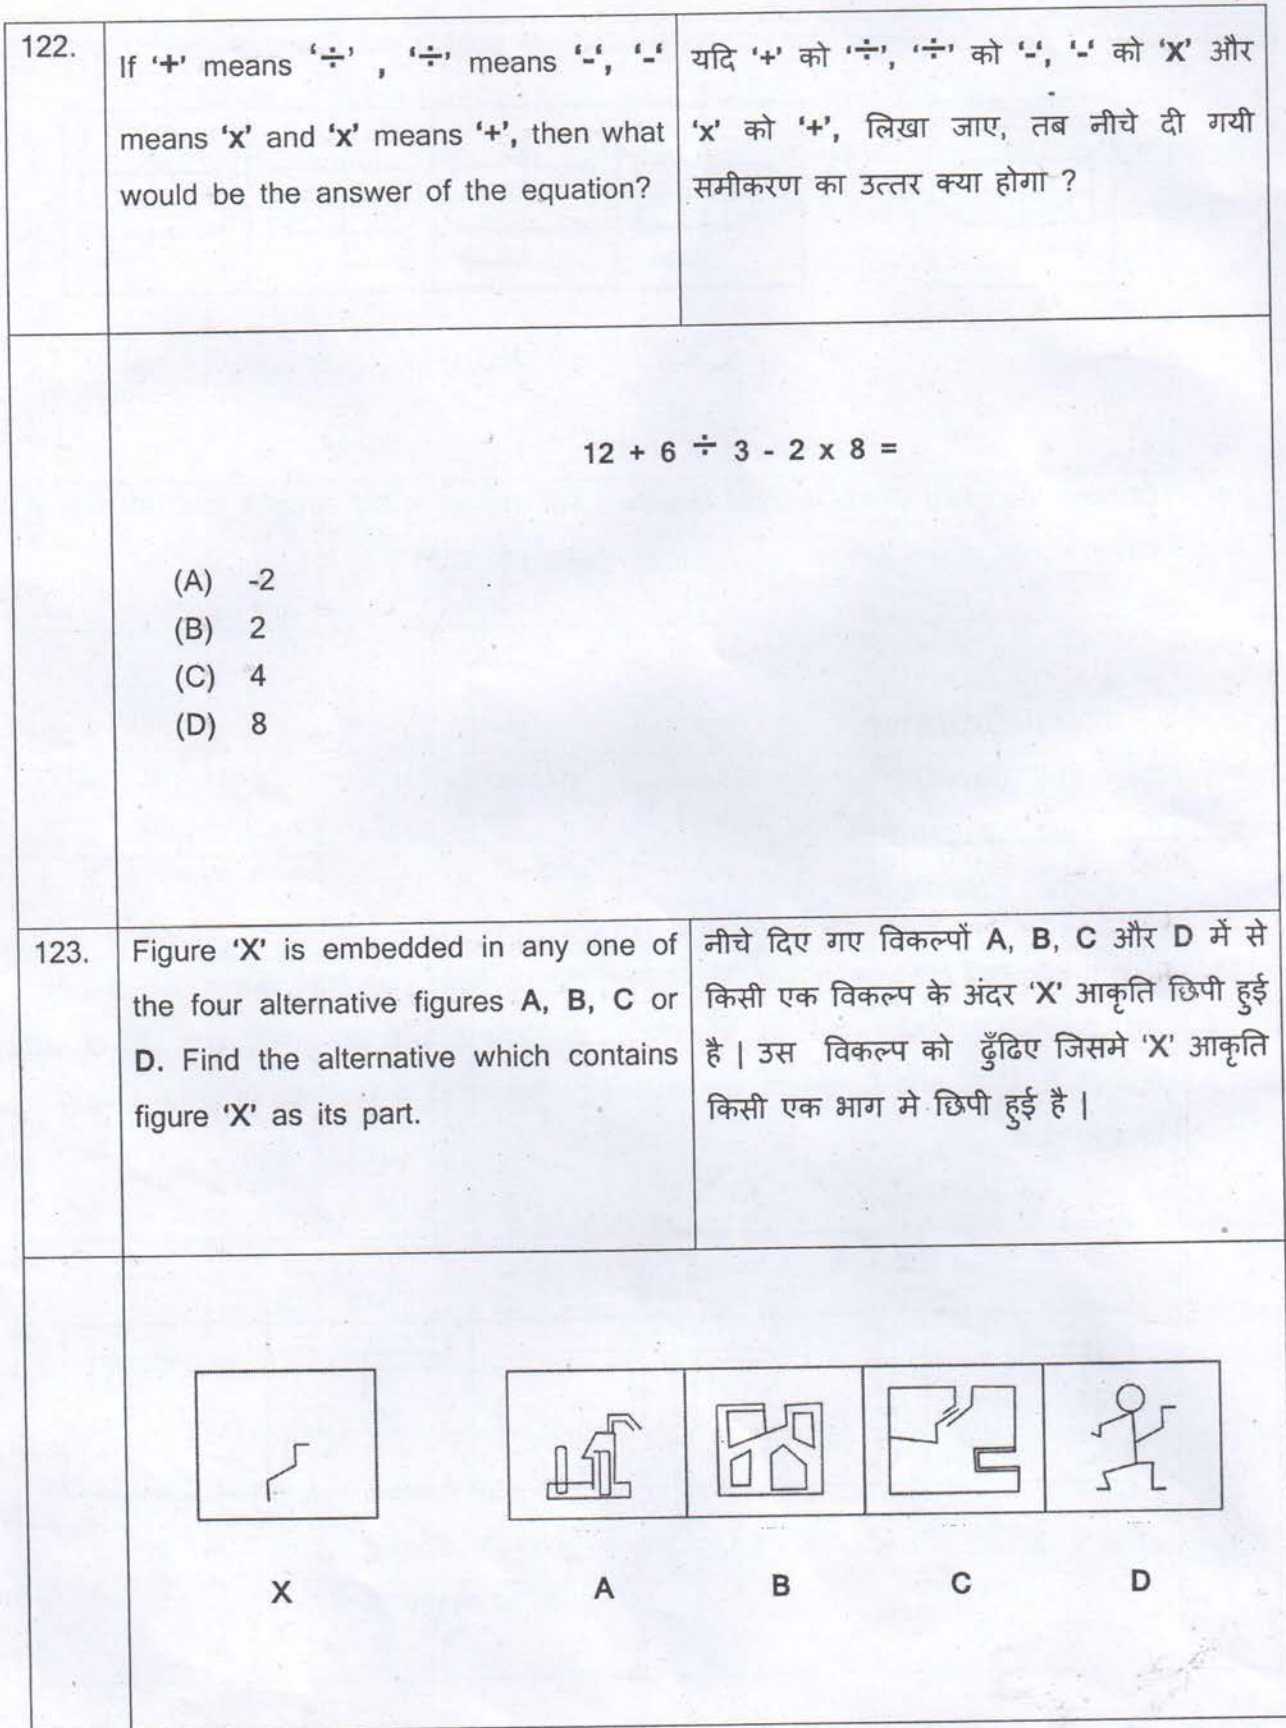 122.
If ‘+’ means ‘÷’ , ‘÷’ means ‘-‘, ‘-‘
means ‘x’ and ‘x’ means ‘+’, then what
would be the answer of the equation?
यदि ‘+’ को ‘÷’, ‘÷’ को ‘-‘, ‘-‘ को ‘X’ और
‘x’ को ‘+’, लिखा जाए, तब नीचे दी गयी
समीकरण का उत्तर क्या होगा ?
12 + 6 ÷ 3 - 2 x 8 =
(A) -2
(B) 2
(C) 4
(D) 8
123.
Figure ‘X’ is embedded in any one of
the four alternative figures A, B, C or
D. Find the alternative which contains
figure ‘X’ as its part.
नीचे दिए गए विकल्पों A, B, C और D में से
किसी एक विकल्प के अंदर ‘X’ आकृति छिपी हुई
है | उस विकल्प को ढुँढिए जिसमे ‘X’ आकृति
किसी एक भाग मे छिपी हुई है |
X A B C D